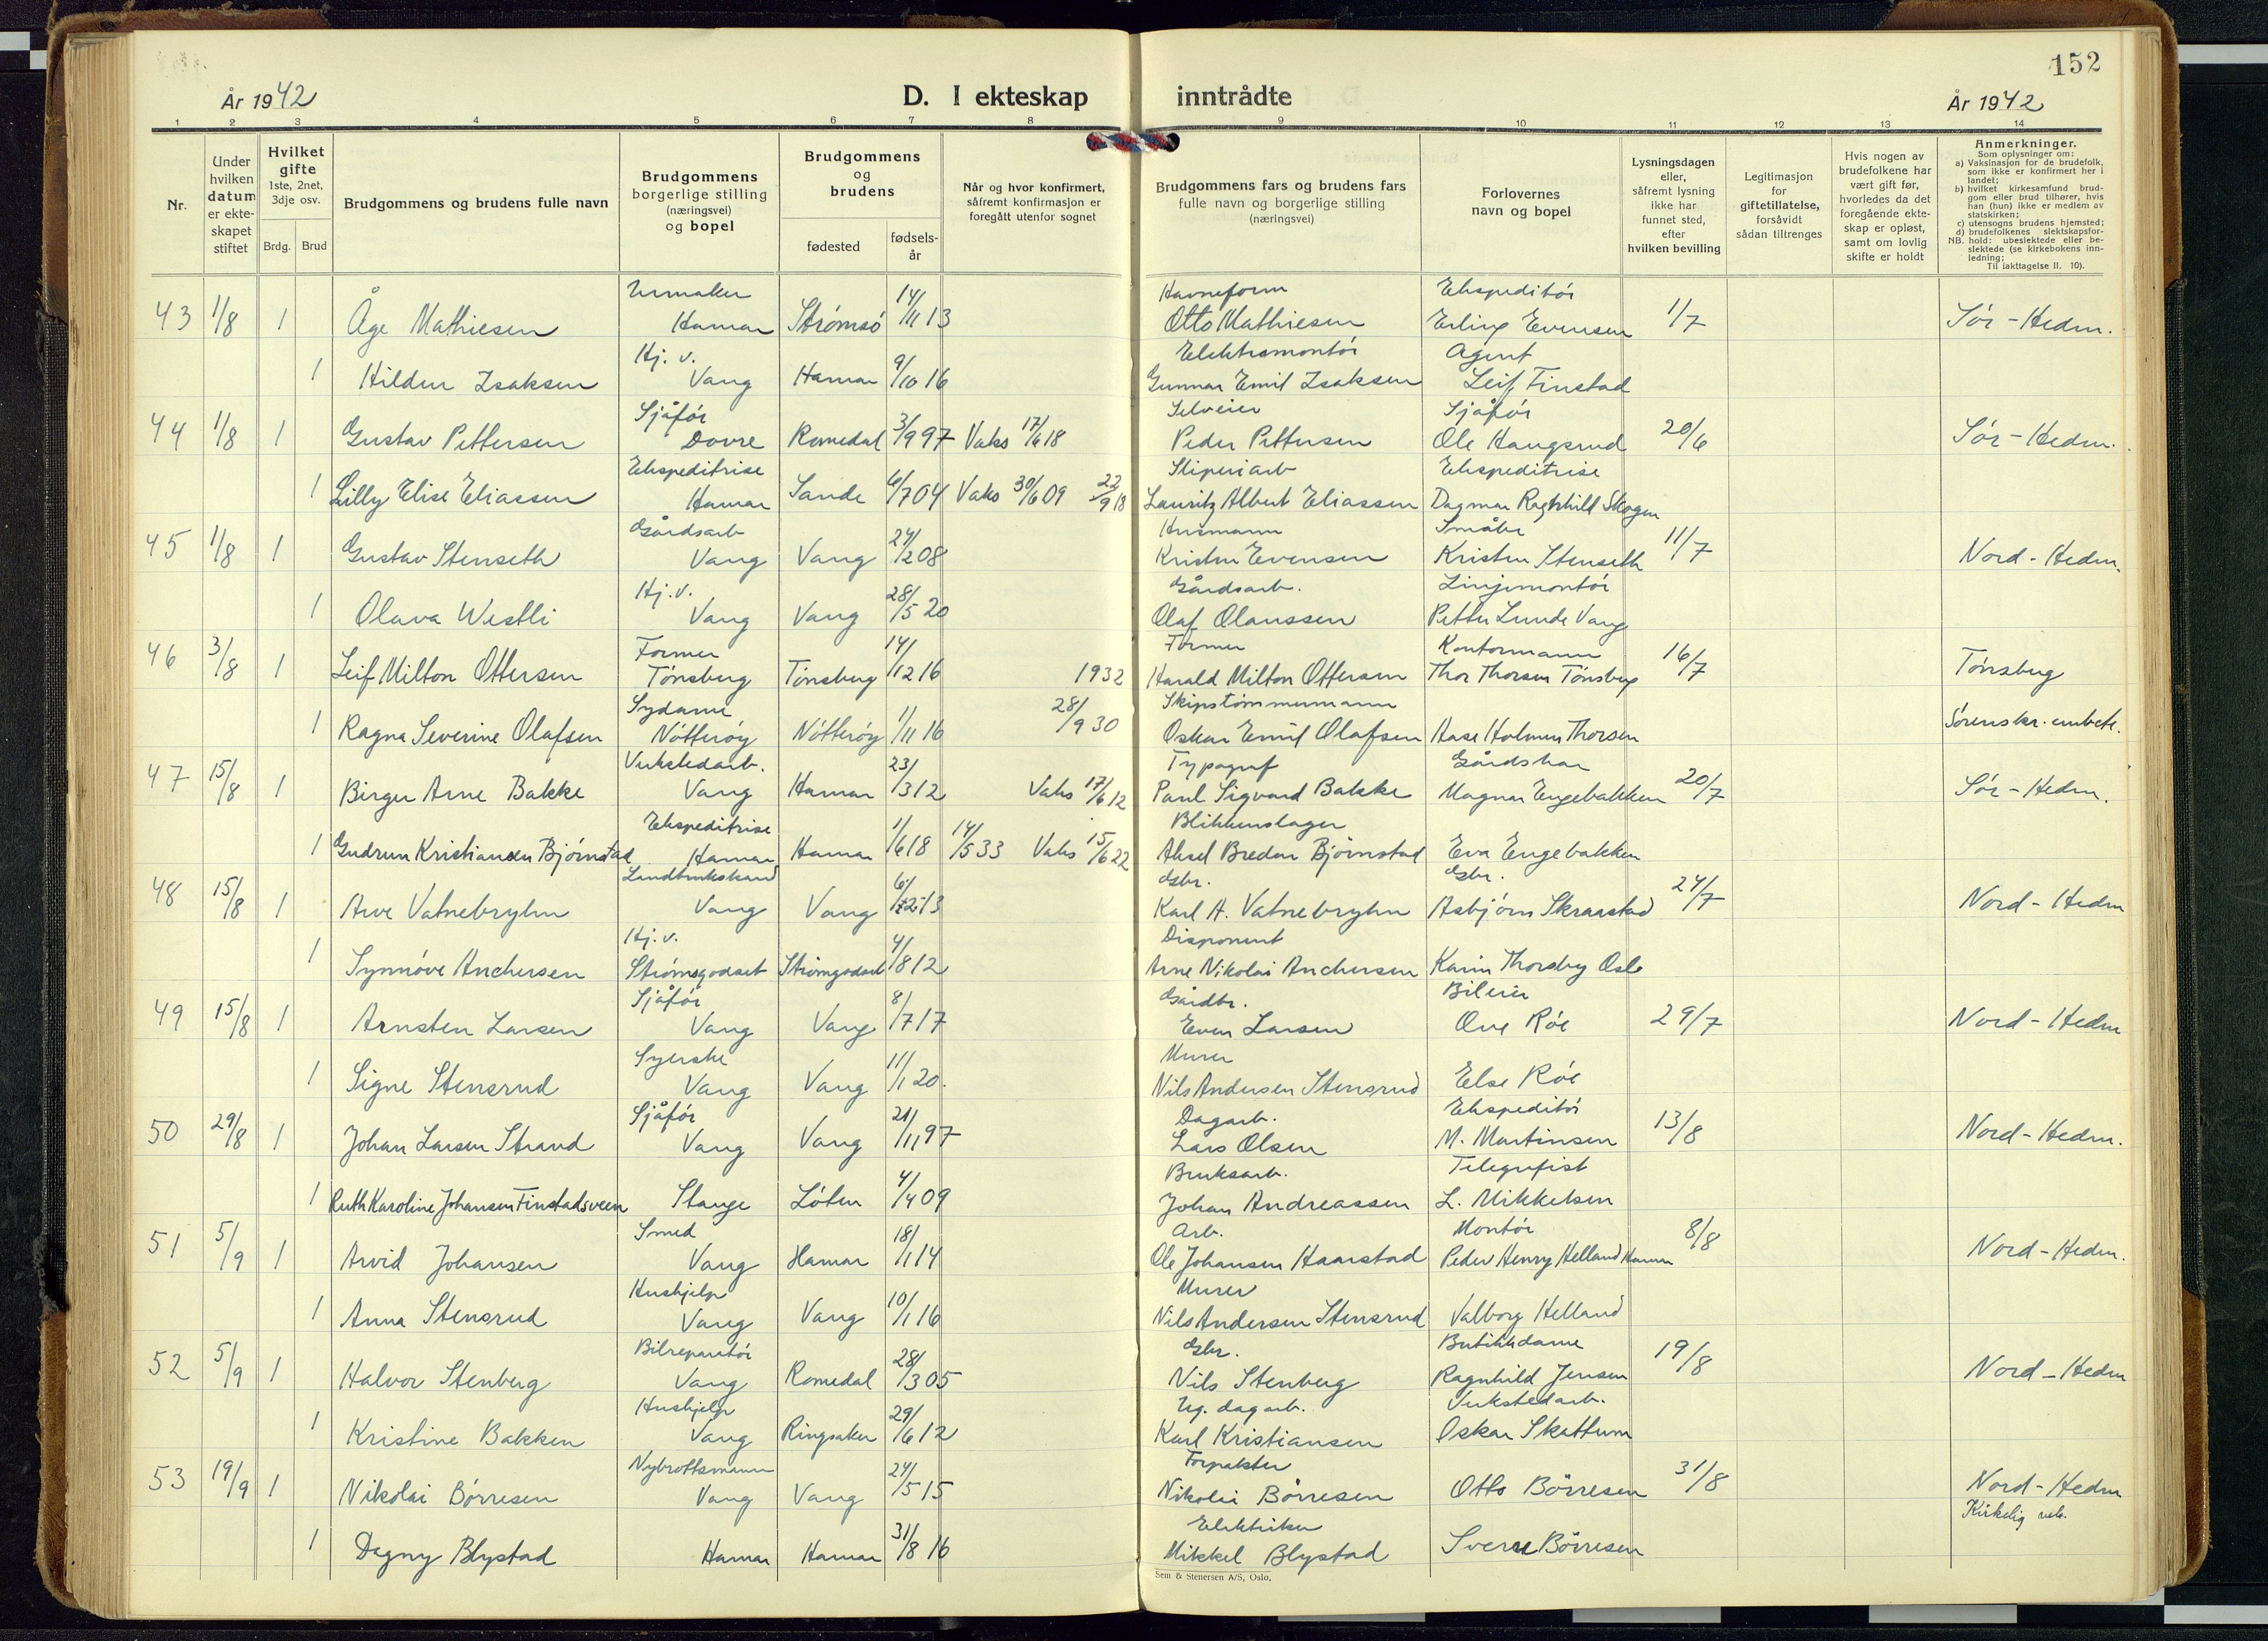 152
År 1942 D. I ekteskap inntrådte År 1942
1 2 3 4 5 6 7 8 9 10 11 12 13 14
Nr.
Under hvilken datum er ekte-skapet stiftet
Hvilket gifte 1ste, 2net, 3dje osv.
Brdg. Brud
Brudgommens og brudens fulle navn
Brudgommens borgerlige stilling (næringsvei) og bopel
Brudgommens og brudens
fødested fødsels-år
Når og hvor konfirmert, såfremt konfirmasjon er foregått utenfor sognet
Brudgommens fars og brudens fars fulle navn og borgerlige stilling (næringsvei)
Forlovernes navn og bopel
Lysningsdagen eller, såfremt lysning ikke har funnet sted, efter hvilken bevilling
Legitimasjon for giftetillatelse, forsåvidt sådan tiltrenges
Hvis nogen av brudefolkene har vært gift før, hvorledes da det foregående ekte-skap er opløst, samt om lovlig skifte er holdt
Anmerkninger.
Som oplysninger om:
a) Vaksinasjon for de brudefolk, som ikke er konfirmert her i landet;
b) hvilket kirkesamfund brud-gom eller brud tilhører, hvis han (hun) ikke er medlem av statskirken;
c) utensogns brudens hjemsted;
d) brudefolkenes slektskapsfor-
NB. hold: ubeslektede eller be-slektede (se kirkebokens inn-ledning;
Til iakttagelse II. 10).
Urmaker Havneform Ekspeditör
43 1/8 1 Åge Mathiesen Hamar Strömsö 14/11 13 Otto Mathiesen Erling Evensen 1/7 Sör-Hedm.
Hj. v. Elektromontör Agent
1 Hildur Isaksen Vang Hamar 9/10 16 Gunnar Emil Isaksen Leif Finstad
Sjåför Selveier Sjåför
44 1/8 1 Gustav Pettersen Dovre Romedal 3/9 97 Vaks 17/6 18 Peder Pettersen Ole Haugsrud 20/6 Sör-Hedm.
Ekspeditrise Sliperiarb Ekspeditrise
1 Lilly Elise Eliassen Hamar Sande 6/7 04 Vaks 30/6 09 22/9 18 Lauritz Albert Eliassen Dagmar Ragnhill Skogen
Gårdsarb Husmann Småbr
45 1/8 1 Gustav Stenseth Vang Vang 24/2 08 Kristen Evensen Kristen Stenseth 11/7 Nord-Hedm.
Hj. v. Gårdsarb. Linjemontör
1 Olava Westli Vang Vang 28/5 20 Olaf Olaussen Petter Lunde Vang
Former Former Kontormann
46 3/8 1 Leif Milton Ottersen Tönsberg Tönsberg 14/12 16 1932 Harald Milton Ottersen Thor Thorsen Tönsberg 16/7 Tönsberg
Sydame Skipstömmermann
1 Ragna Severine Olafsen Nötteröy Nötteröy 1/11 16 28/9 30 Oskar Emil Olafsen Aase Holmen Thorsen Sörenskr. embete.
Verkstedarb. Typograf Gårdskar
47 15/8 1 Birger Arne Bakke Vang Hamar 23/3 12 Vaks 17/6 12 Paul Sigvard Bakke Magnar Engebakken 20/7 Sör-Hedm.
Ekspeditrise Blikkenslager
1 Gudrun Kristiansen Bjørnstad Hamar Hamar 1/6 18 14/5 33 Vaks 15/6 22 Aksel Bredar Bjørnstad Eva Engebakken
Landbrukskand Gbr. Gbr.
48 15/8 1 Arve Vatnebryhn Vang Vang 6/12 13 Karl A. Vatnebryhn Asbjørn Skraastad 24/7 Nord-Hedm
Hj. v. Disponent
1 Synnöve Anchersen Strömsgodset Strömsgodset 4/8 12 Arne Nikolai Anchersen Karin Thorsby Oslo
Sjåför Gårdbr. Bileier
49 15/8 1 Arnsten Larsen Vang Vang 8/7 17 Even Larsen Ove Röe 29/7 Nord-Hedm
Syerske Murer
1 Signe Stensrud Vang Vang 11/1 20. Nils Andersen Stensrud Else Röe
Sjåför Dagarb. Ekspeditör
50 29/8 1 Johan Larsen Strand Vang Vang 21/11 97 Lars Olsen M. Martinsen 13/8 Nord-Hedm.
Bruksarb. Telegrafist
1 Ruth Karoline Johansen Finstadsveen Stange Löten 4/4 09 Johan Andreassen L. Mikkelsen
Smed Arb. Montör
51 5/9 1 Arvid Johansen Vang Hamar 18/1 14 Ole Johansen Haarstad Peder Henry Helland Hamar 8/8 Nord-Hedm.
Hushjelp Murer
1 Anna Stensrud Vang Vang 10/1 16 Nils Andersen Stensrud Valborg Helland
Bilreparatör Gbr. Butikkdame
52 5/9 1 Halvor Stenberg Vang Romedal 28/3 05 Nils Stenberg Ragnhild Jensen 19/8 Nord-Hedm
Hushjelp Ug. dagarb. Verkstedarb.
1 Kristine Bakken Vang Ringsaker 29/6 12 Karl Kristiansen Oskar Skattum
Nybrottsmann Forpakter
53 19/9 1 Nikolai Börresen Vang Vang 24/5 15 Nikolai Börresen Otto Börresen 31/8 Nord-Hedm
Elektriker Kirkelig vels.
1 Dagny Blystad Hamar Hamar 31/8 16 Mikkel Blystad Sverre Börresen
Sem & Stenersen A/S, Oslo.